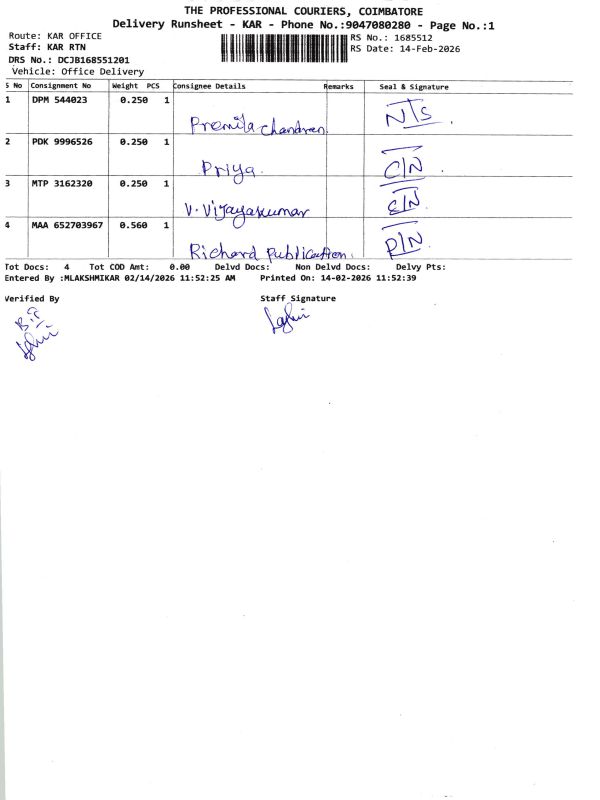 THE PROFESSIONAL COURIERS, COIMBATORE
Delivery Runsheet - KAR - Phone No.:9047080280 - Page No.:1
Route: KAR OFFICE RS No.: 1685512
Staff: KAR RTN RS Date: 14-Feb-2026
DRS No.: DCJB168551201
Vehicle: Office Delivery
S No Consignment No Weight PCS Consignee Details Remarks Seal & Signature
1 DPM 544023 0.250 1
Premila Chandran. NTS
2 PDK 9996526 0.250 1
Priya. C/N
3 MTP 3162320 0.250 1
V. Vijayakumar
4 MAA 652703967 0.560 1
Richard Publication. D/N
Tot Docs: 4 Tot COD Amt: 0.00 Delvd Docs: Non Delvd Docs: Delvy Pts:
Entered By :MLAKSHMIKAR 02/14/2026 11:52:25 AM Printed On: 14-02-2026 11:52:39
Verified By Staff Signature